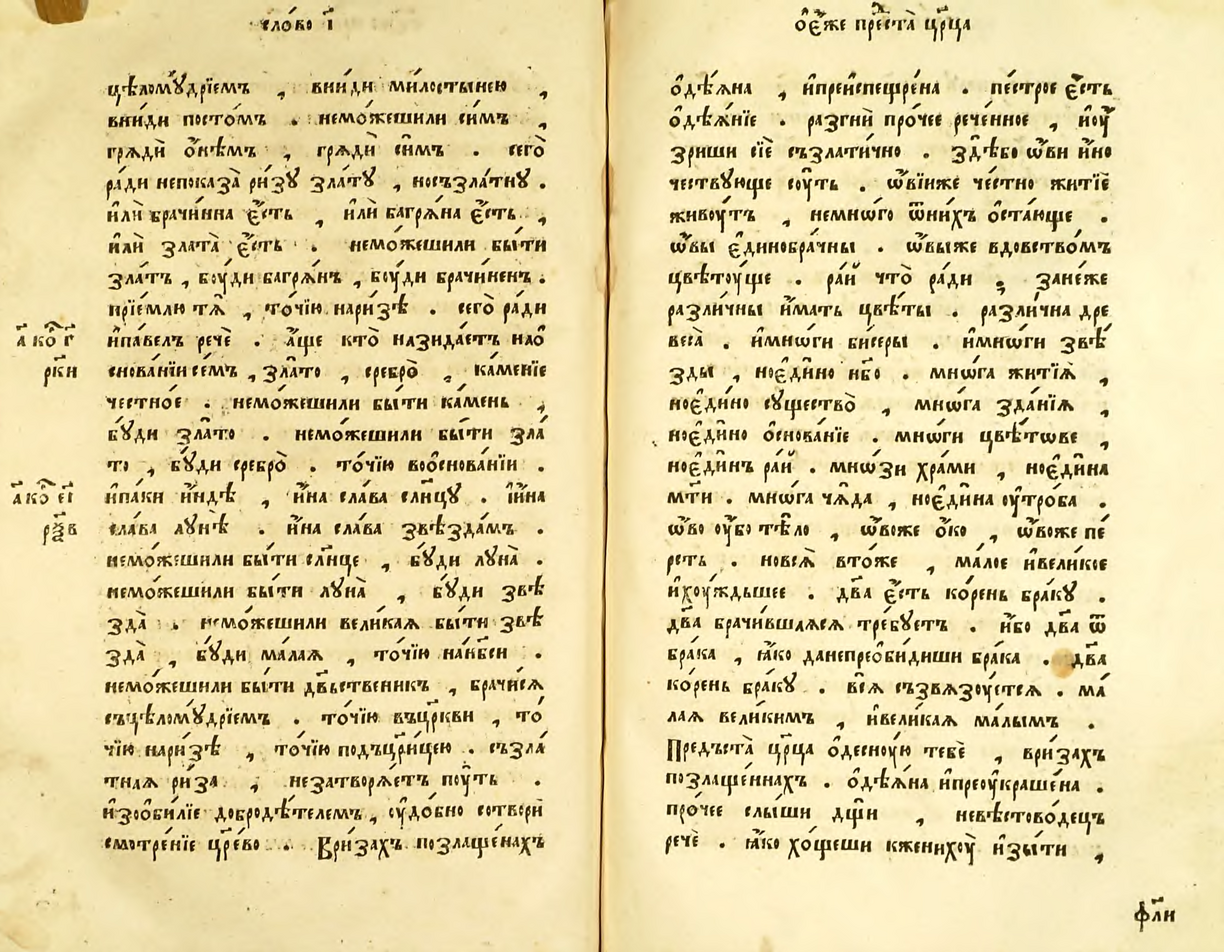 сло́во і҃
цѣлому́дрїемъ , вни́иди ми́лостынею ,
вни́иди посто́мъ . немо́жешили си́мъ ,
грѧдѝ ѻ҆нѣ́мъ , грѧдѝ си́мъ . сегѡ̀
ра́ди непоказа̀ ри́зꙋ зла́тꙋ , носъзла́тнꙋ .
и҆лѝ брачи́нна є҆́сть , и҆лѝ багрѧ́на є҆́сть ,
и҆лѝ злата̀ є҆́сть . немо́жешили бы́ти
зла́тъ , бо́уди багрѧ́нъ , бо́уди брачи́ненъ .
прїе́млю тѧ̀ , то́чїю нари́зѣ . сего̀ ра́ди
и҆па́велъ речѐ . а҆́ще кто̀ назида́етъ нао҆
снова́нїи се́мъ , зла́то , сребро̀ , ка́менїе
честно́е . немо́жешили бы́ти ка́мень ,
бꙋ́ди зла́то . немо́жешили бы́ти зла́
то , бꙋ́ди сребро̀ . то́чїю воѻ҆снова́нїи .
и҆па́ки и҆́ндѣ , и҆́на сла́ва сл҃нцꙋ . и҆и҆́на
сла́ва лꙋнѣ̀ . и҆́на сла́ва звѣзда́мъ .
немо́жешили бы́ти сл҃нце , бꙋ́ди лꙋна̀ .
немо́жешили бы́ти лꙋна̀ , бꙋ́ди звѣ
зда̀ . немо́жешили вели́каѧ бы́ти звѣ
зда̀ , бꙋ́ди ма́лаѧ , то́чїю нан҃бси .
немо́жешили бы́ти дв҃ьственикъ , брачи́сѧ
съцѣлому́дрїемъ . то́чїю въцр҃кви , то́
чїю нари́зѣ , то́чїю подъцр҃ицею . съзла́
тнаѧ ри́за , незатворѧ́етъ поу́ть .
и҆зоѻби́лїе добродѣ́телемъ , оу҆до́бно сотвори̾
смотре́нїе цр҃е́во . Ври́захъ позлаще́нахъ
а҃ ко҃ г҃
рки
а҃ ко҃ е҃і
ра҃в
ѻ҆є҆́же прⷣеста̀ цр҃ца
ѻ҆дѣ́ѧна , и҆преи҆спещре́на . пе́строе є҆́сть
ѻ҆дѣѧ́нїе . разгнѝ про́чее рече́нное , и҆оу҆́
зриши сїѐ съзлати́чно . здѣ́бо ѡ҆́ви и҆́но
че́ствꙋюще со́уть . ѡ҆ві́иже че́стно житїѐ
живо́утъ , немнѡ́го ѿни́хъ ѻ҆ста́юще .
ѡ҆вы̀ є҆динобра́чны . ѡ҆вы́же вдовство́мъ
цвѣто́уще . ра́й что̀ ра́ди ; зане́же
разли́чны и҆́мать цвѣ́ты . разли́чна дре
веса̀ . и҆мнѡ́ги би́серы . и҆мнѡ́ги звѣ́
зды , ноє҆ди́но нб҃о . мнѡ́га житїѧ̀ ,
ноє҆ди́но сꙋщество̀ , мнѡ́га зда́нїѧ ,
ноє҆ди́но ѻ҆снова́нїе . мнѡ́ги цвѣ́тове ,
ноє҆ди́нъ ра́й . мнѡ́зи хра́ми , ноє҆ди́на
мт҃и . мнѡ́га чѧ́да , ноє҆ди́на оу҆тро́ба .
ѡ҆́во оу҆́бо тѣ́ло , ѡ҆́воже ѻ҆́ко , ѡ҆́воже пе́
рстъ . новсѧ̀ вто́же , ма́лое и҆вели́кое
и҆хоу́ждьшее . дв҃а є҆́сть ко́рень бра́кꙋ .
дв҃а брачи́вшаѧсѧ тре́бꙋетъ . и҆́бо дв҃а ѿ
бра́ка , ꙗ҆́ко данепреѻ҆би́диши бра́ка . дв҃а
ко́рень бра́кꙋ . всѧ̀ съзвѧ́зоуетсѧ . ма́
лаѧ вели́кимъ , и҆вели́каѧ ма́лымъ .
Предъста̀ цр҃ца ѻ҆десно́ую тебѐ , ври́захъ
позлаще́ннахъ . ѻ҆дѣ́ѧна и҆преоу҆кра́шена .
про́чее слы́ши дщ҃и , невѣстово́децъ
речѐ . ꙗ҆́ко хо́щеши кженихоу̀ и҆зы́ти ,
фл҃и